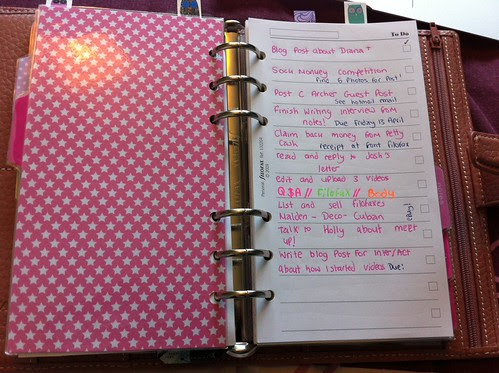 To Do
Blog Post about Diana +
Sock Monkey Competition
Find 5 Photos for Post!
Post C Archer Guest Post
See hotmail email
Finish Writing interview from
notes! Due Friday 13 April
Claim back money from Petty
Cash receipt at front filofax
read and reply to Josh's
letter
edit and upload 3 videos
Q&A // Filofax // Body
List and sell filofaxes
Malden - Deco - Cuban
(eBay)
Talk to Holly about meet
up!
Write blog Post for inter/Act
about how I started videos Due:
Personal filofax